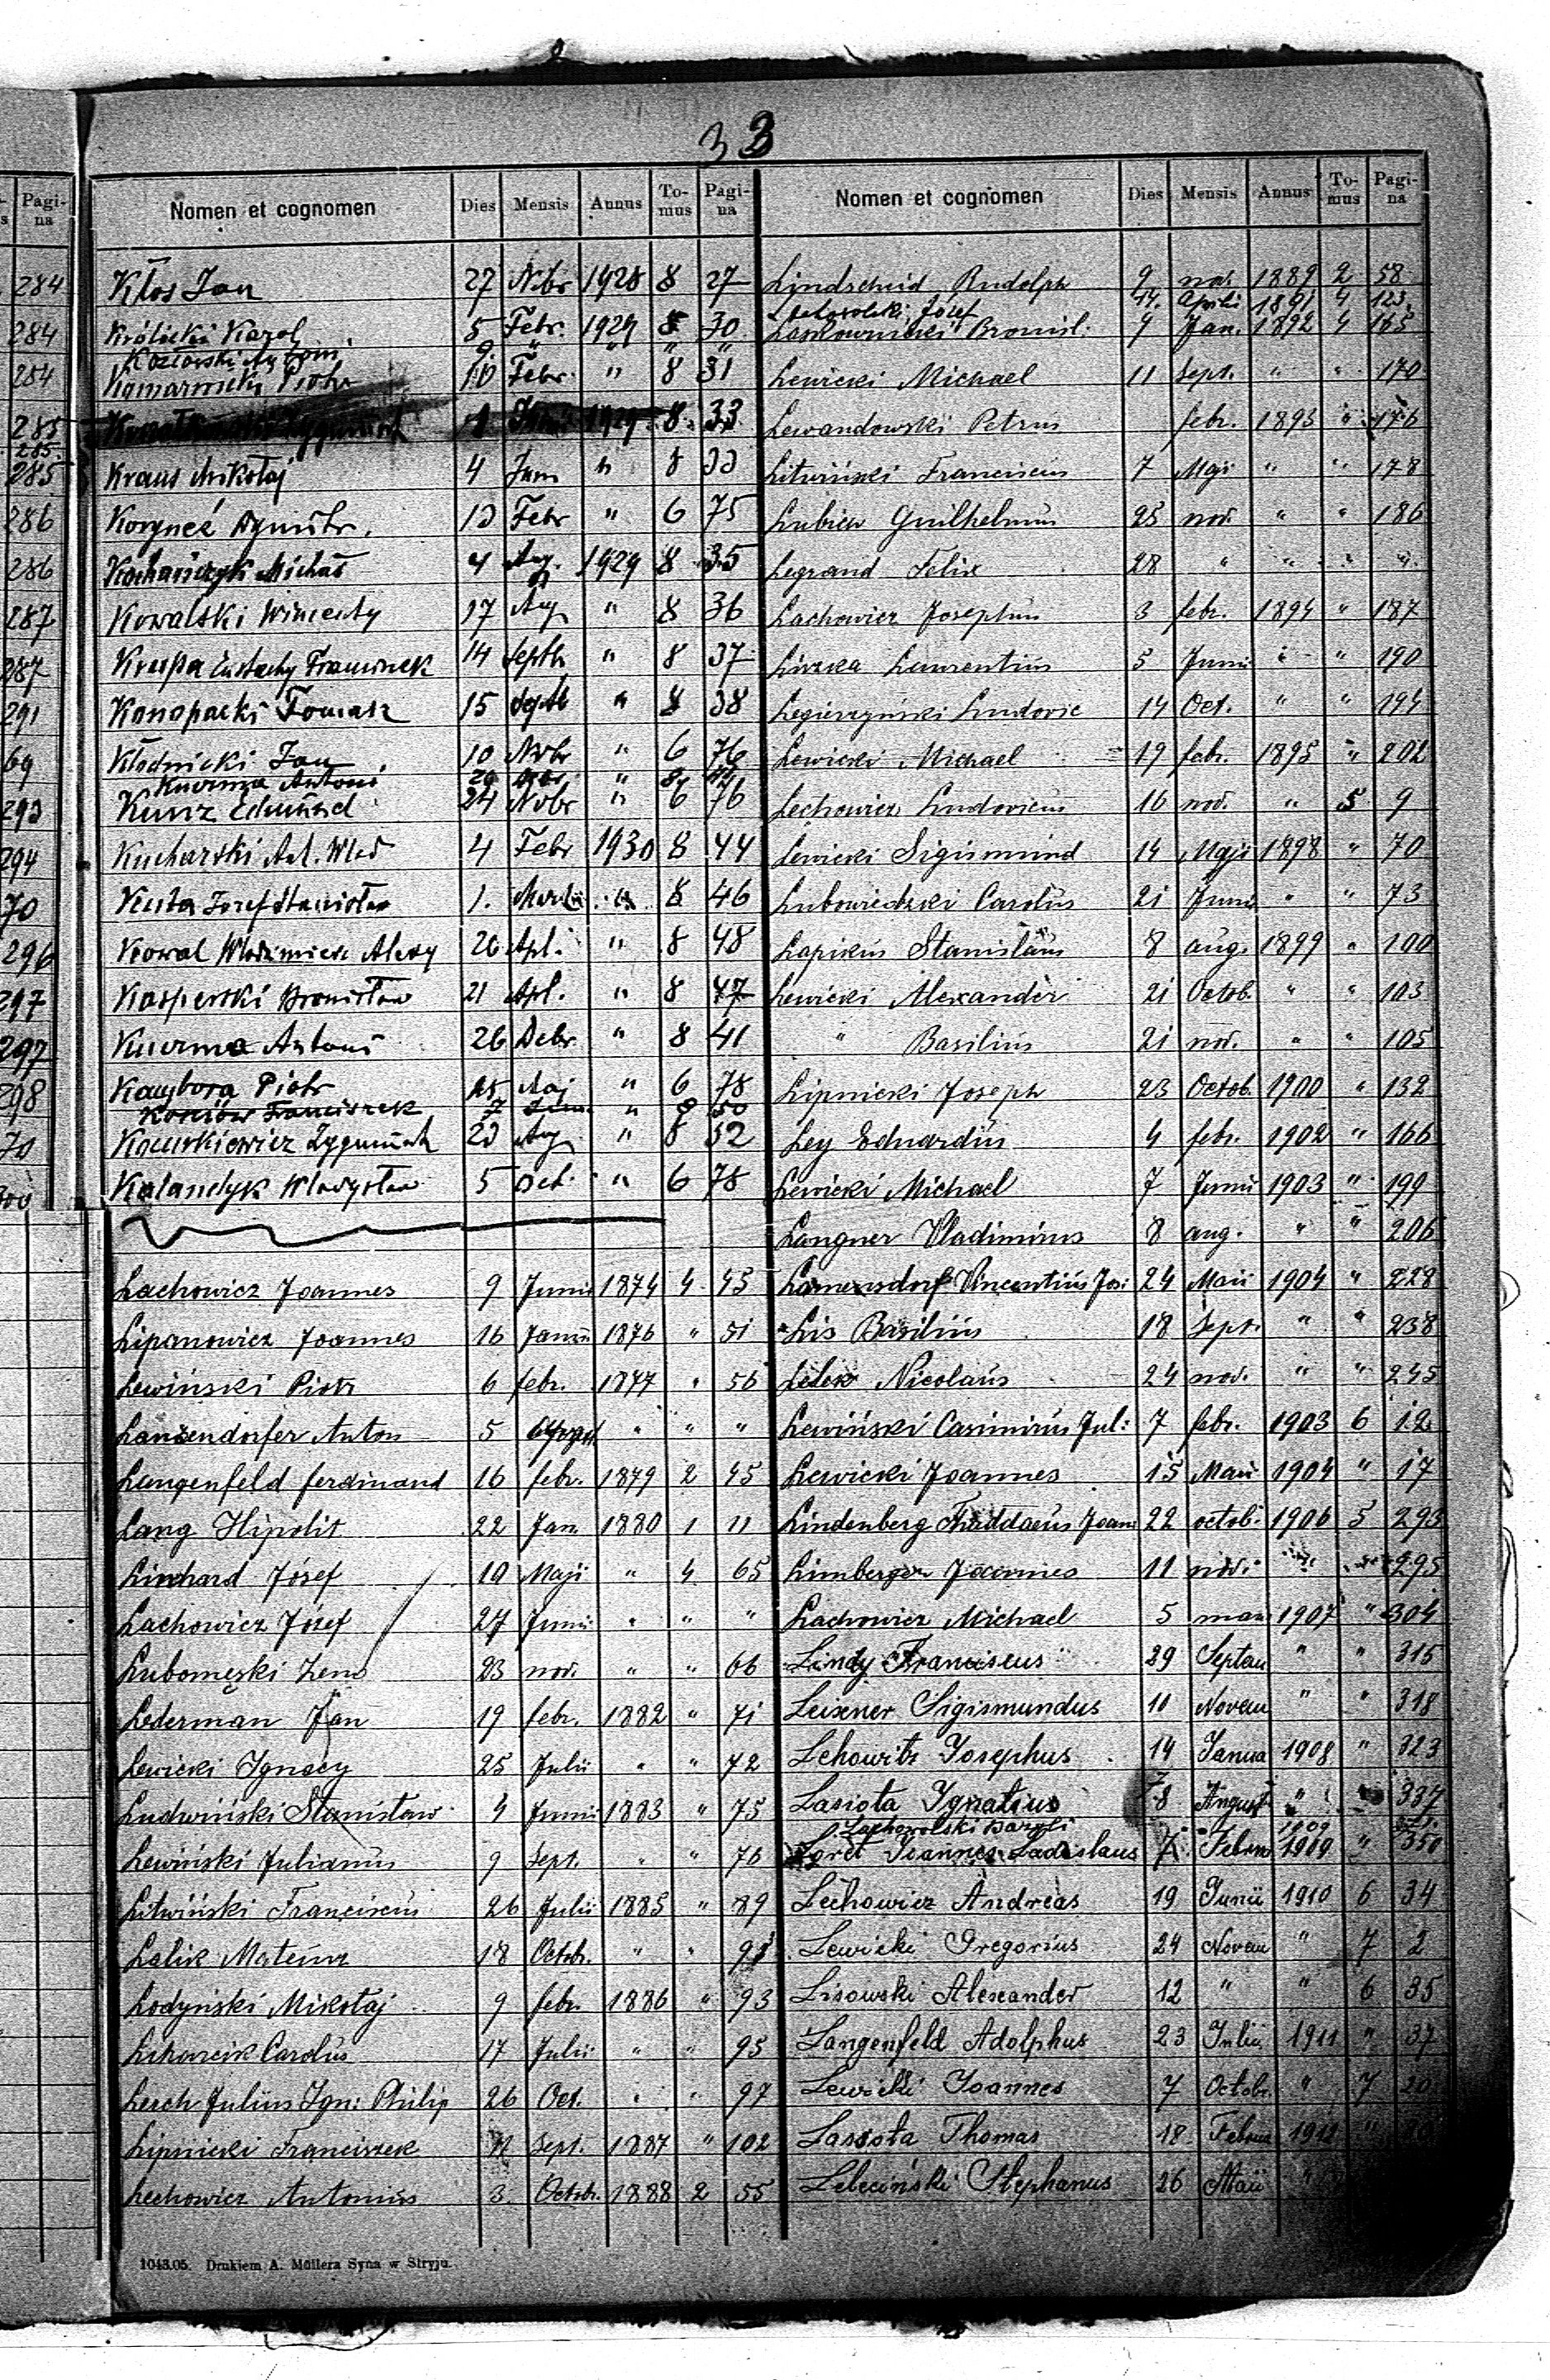 33
Nomen et cognomen Dies Mensis Annus To-mus Pagi-na
Kłos Jan 27 Nvbr 1928 8 27
Królicki Karol 5 Febr. 1929 8 30
Kozłowski Antoni 9. " " " "
Komarnicki Piotr 10 Febr. " 8 31
1 1929 8. 33
Kraus Mikołaj 4 Jun " 8 33
13 Febr " 6 75
Kochańczyk Michał 4 Aug. 1929 8 35
Kowalski Wincenty 17 Aug " 8 36
Krupa Eustachy Franciszek 14 Septb " 8 37
Konopacki Tomasz 15 Septb " 8 38
Kłodnicki Jan 10 Nvbr " 6 76
Kuerma Antoni
Kunz Edmund 24 Nvbr " 6 76
Kucharski Ant. Wład 4 Febr 1930 8 44
Kusta Józef Stanisław 1. " 8 46
Kowal Włodzimierz Alexy 26 Apl. " 8 48
Kasperski Bronisław 21 Apl. " 8 47
Kuerma Antoni 26 Debr " 8 41
Kampora Piotr 25 Maj " 6 78
Kościów Franciszek 7 " 8 50
Kaczurkiewicz Zygmunt 23 Aug " 8 52
Kalandyk Władysław 5 Oct. " 6 78
Lachowicz Joannes 9 Junii 1874 4 45
Lipanowicz Joannes 16 Januii 1876 " 51
Lewiński Piotr 6 febr. 1877 " 56
Lanzendorfer Anton 5 August " " "
Langenfeld ferdinand 16 febr. 1879 2 45
Lang Hipolit 22 Jan. 1880 1 11
Linhard Józef 10 Maji " 4 65
Lachowicz Józef 27 Junii " " "
Lubomęski Zeno 23 nov. " " 66
Lederman Jan 19 febr. 1882 " 71
Lewicki Ignacy 25 Julii " " 72
Ludwiński Stanisław 4 Junii 1883 " 75
Lewiński Julianus 9 Sept. " " 76
Litwiński Franciscus 26 Julii 1885 " 89
Lalik Mateusz 18 Octob. " " 91
Łodyński Mikołaj 9 febr. 1886 " 93
Carolus 17 Julii " " 95
Lerch Julius Ign: Philip 26 Oct. " " 97
Lipnicki Franciszek Sept. 1887 " 102
Lechowicz Antonius 3 Octob. 1888 2 55
1043.05. Drukiem A. Müllera Syna w Stryju.
Nomen et cognomen Dies Mensis Annus To-mus Pagi-na
Lindschmid Rudolph 9 nov. 1889 2 58
Józef Aprili 1891 4 123
Laskownicki Bronisl. 9 Jan. 1892 4 165
Lewicki Michael 11 Sept. " " 170
Lewandowski Petrus febr. 1893 " 176
Litwiński Franciscus 7 Maji " " 178
Lubiew Guilhelmus 25 nov. " " 186
Legrand Felix 28 " " " "
Lachowicz Josephus 3 febr. 1894 " 187
Liszka Laurentius 5 Junii " " 190
Legieszyński Ludovic 14 Oct. " " 194
Lewicki Michael 19 febr. 1895 " 202
Lechowicz Ludovicus 16 nov. " 5 9
Lewicki Sigismund 14 Maji 1898 " 70
Lubowiedzki Carolus 21 Junii " " 73
Lapikus Stanislaus 8 aug. 1899 " 100
Lewicki Alexander 21 Octob. " " 103
" Basilius 21 nov. " " 105
Lipnicki Joseph 23 Octob. 1900 " 132
Ley Eduardus 4 febr. 1902 " 166
Lewicki Michael 7 Junii 1903 " 199
Langner Vladimirus 8 aug. " " 206
Lamensdorf Vincentius Jos: 24 Maii 1904 " 228
Lis Basilius 18 Sept. " " 238
Lelek Nicolaus 24 nov. " " 245
Lewiński Casimirus Jul: 7 febr. 1903 6 12
Lewicki Joannes 15 Maii 1904 " 17
Lindenberg Thaddaeus Joan: 22 octob: 1906 5 293
Limberger Joannes 11 nov: " " 295
Lachowicz Michael 5 maii 1907 " 304
Lindy Franciscus 29 Septem " " 315
Leixner Sigismundus 10 Novem " " 318
Lehowitz Josephus 14 Janua 1908 " 323
Lasiota Ignatius 8 August " 337
Lachowolski Bazyli 1909
Loret Joannes Ladislaus 7. Febru 1909 " 350
Lechowicz Andreas 19 Junii 1910 6 34
Lewicki Gregorius 24 Novem " 7 2
Lisowski Alexander 12 " " 6 35
Langenfeld Adolphus 23 Julii 1911 " 37
Lewicki Joannes 7 Octobr. " 7 20
Lassota Thomas 18 Februa 1912 "
Leleciński Stephanus 26 Maii "
Pagi-na
284
284
284
285
285.
285
286
286
287
287
291
69
293
294
70
296
297
297
298